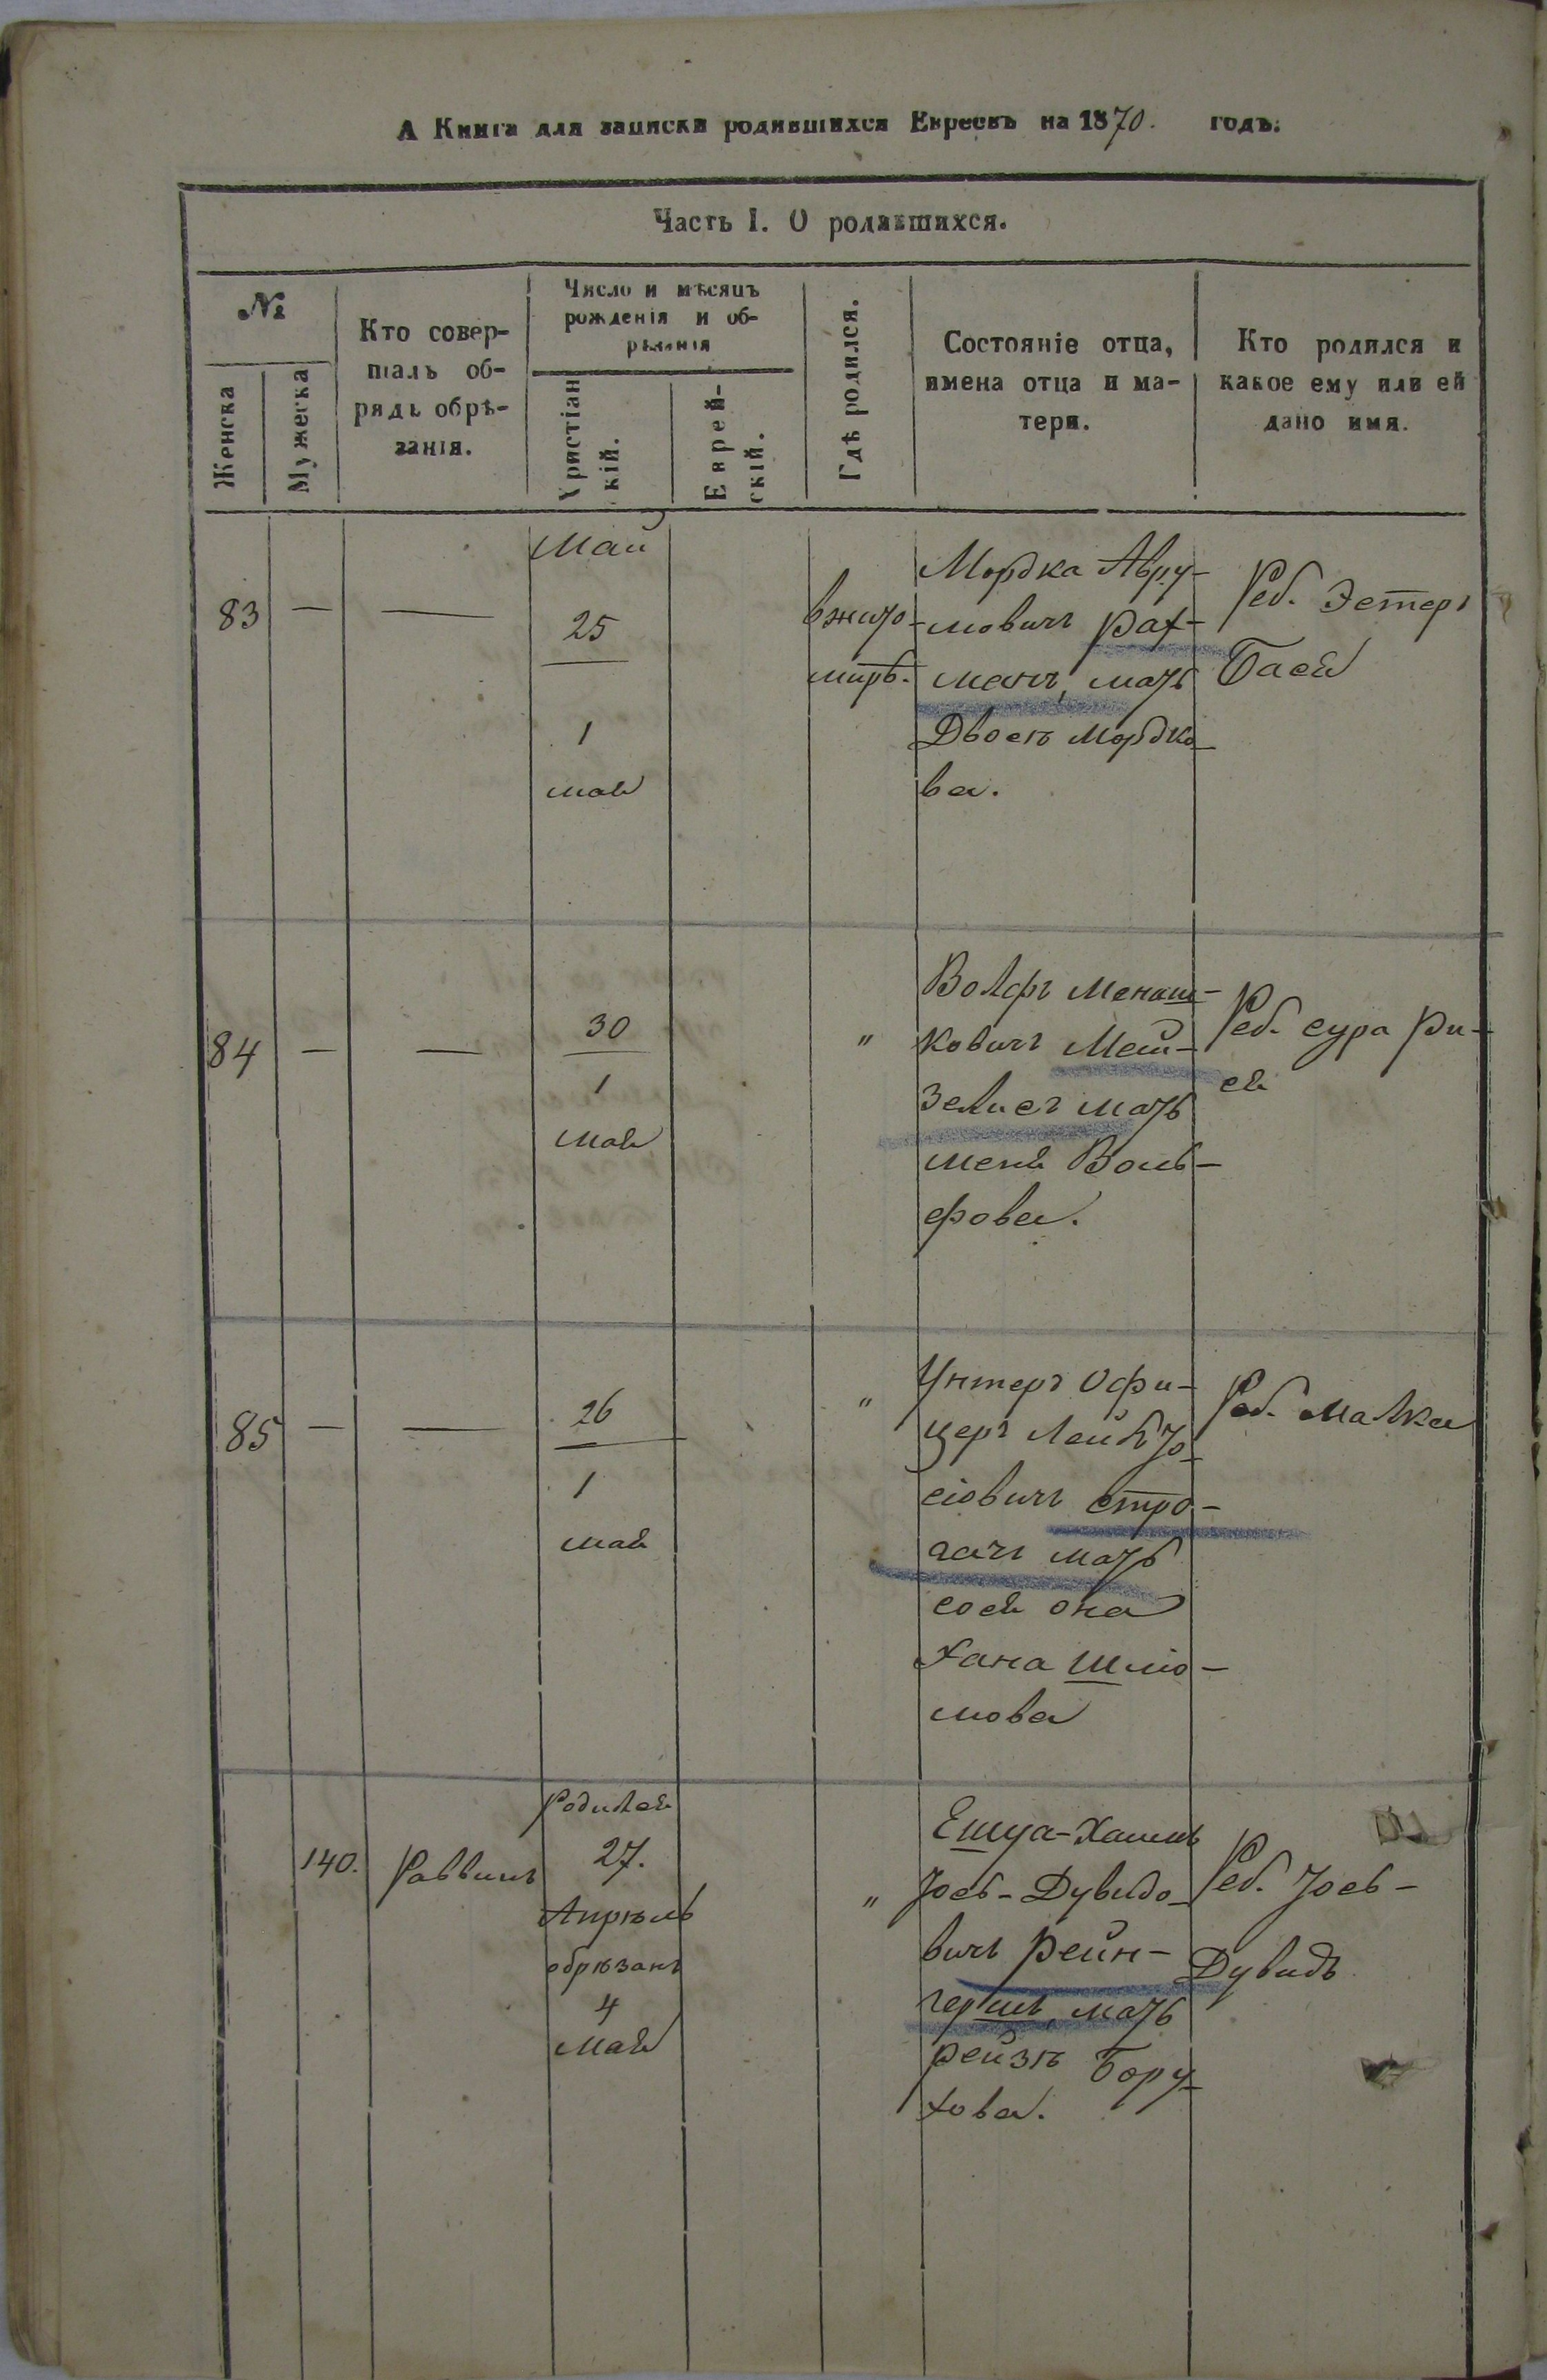 А Книга для записки родившихся Евреевъ на 1870. годъ.
Часть I. О родившихся.
№
Женска
Мужеска
Кто совер-
шалъ об-
рядъ обрѣ-
занія.
Число и мѣсяцъ
рожденія и об-
рѣзанія
Христіан
скій.
Еврей-
скій.
Гдѣ родился.
Состояніе отца,
имена отца и ма-
тери.
Кто родился и
какое ему или ей
дано имя.
83 — —
Май
25
1
мая
вжито-
мирѣ.
Мордка Авру-
мовичъ Рах-
манъ, мать
Двося Мордко-
ва.
Реб. Эстеръ
Бася
84 — —
30
1
мая
"
Волфъ Менаш-
ковичъ Мей-
зелисъ мать
Меня Воль-
фова.
Реб. Сура Ри-
ся
85 — —
26
1
мая
"
Унтеръ Офи-
церъ Лейбъ Іо-
сіовичъ Стро-
гачъ мать
Сося она
Хана Шліо-
мова
Реб. Малка
140.
Раввинъ
Родился
27.
Апрѣль
обрѣзанъ
4
мая
"
Ешуа-Хаимъ
Іось-Дувидо-
вичъ Рейн-
гершъ, мать
Рейзѣ Бору-
хова.
Реб. Іось-
Дувидъ